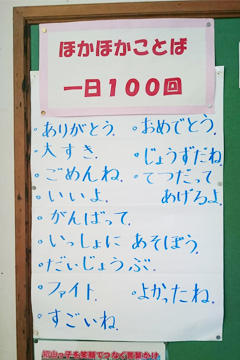 ほかほかことば
一日100回
・ありがとう。
・大すき。
・ごめんね。
・いいよ。
・がんばって。
・いっしょに あそぼう。
・だいじょうぶ。
・ファイト。
・すごいね。
・おめでとう。
・じょうずだね。
・てつだって
あげるよ。
・よかったね。